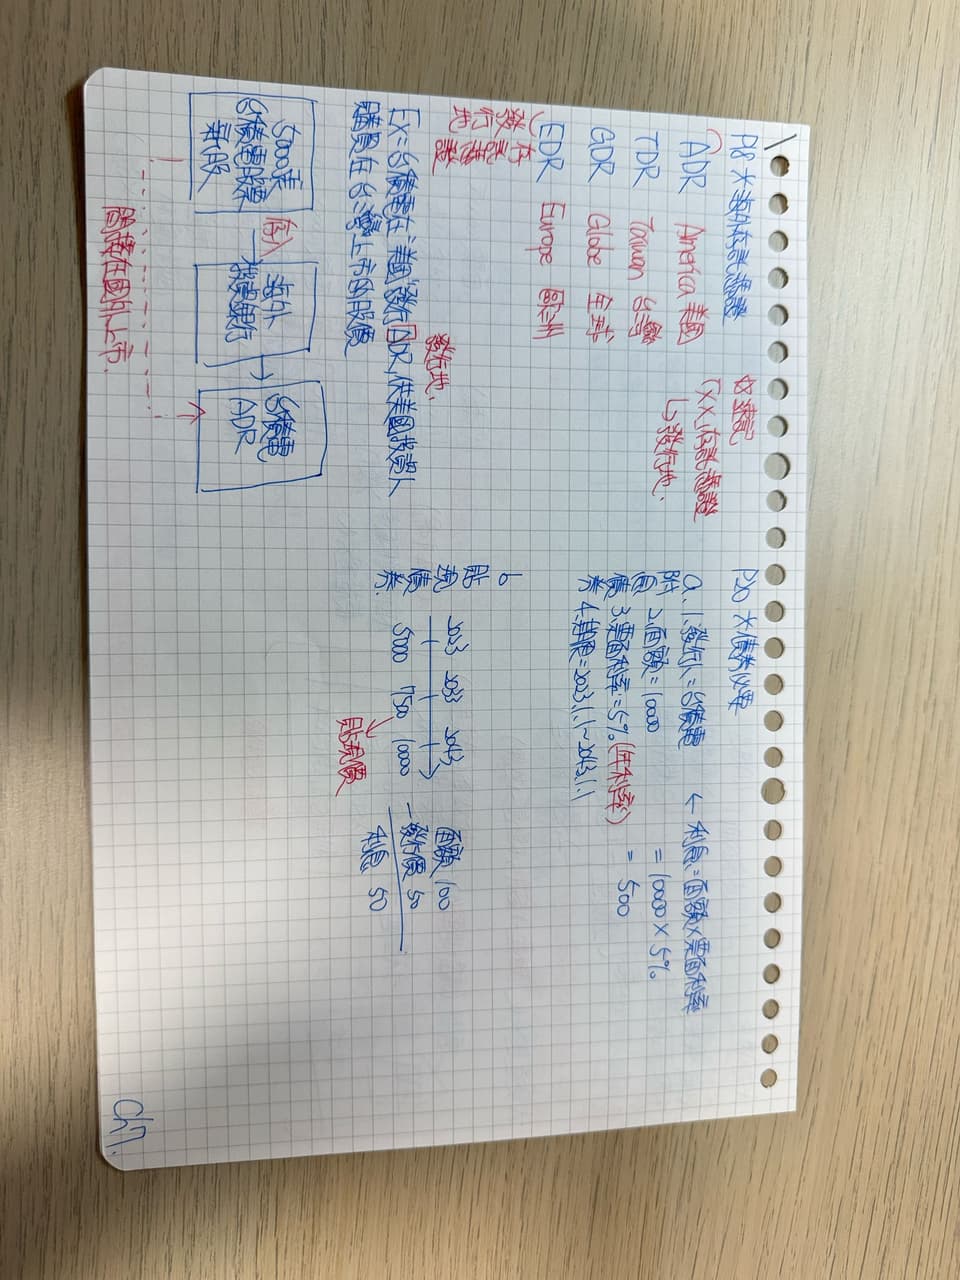 P18 * 海外存託憑證
ADR America 美國
TDR Taiwan 台灣
GDR Globe 全球
EDR Europe 歐洲
發行地
存託憑證
☆速記
「XX」存託憑證
↳發行地.
發行地.
Ex=台積電在「美國」發行ADR,供美國投資人
購買在台灣上市的股價
5000張
台積電股票
新股
存入
海外
存託銀行
台積電
ADR
間接在國外上市.
P20 * 債券必畢
a. 1.發行人=台積電
附息債券
2.面額=10000
3.票面利率=5% (年利率)
4.期限=2023.1.1~2043.1.1
← 利息=面額×票面利率
=10000×5%
=500
b
貼現債券.
2023 2033 2043
5000 7500 10000
貼現價
面額 100
-發行價 50
利息 50
Ch7.